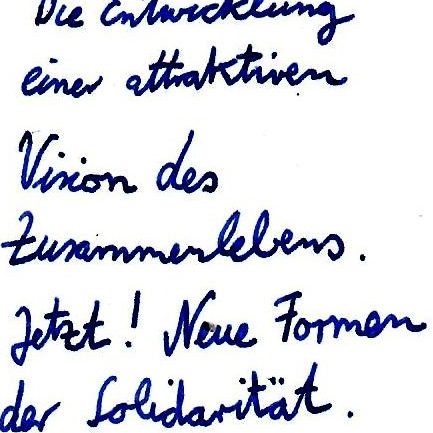 Die Entwicklung
einer attraktiven
Vision des
Zusammenlebens.
Jetzt! Neue Formen
der Solidarität.